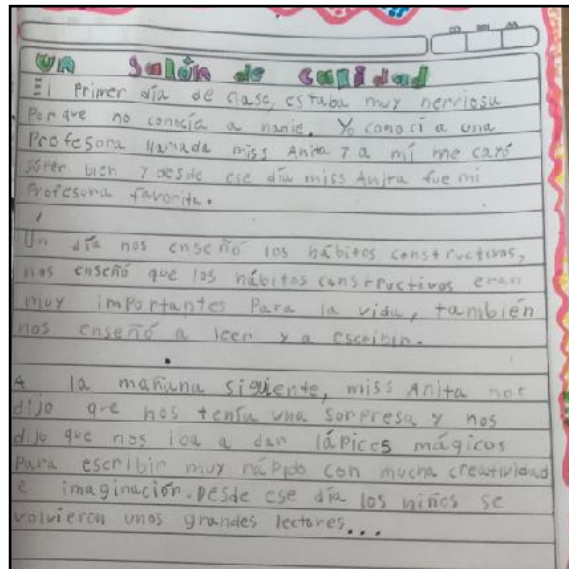 Un salón de calidad
El primer día de clase, estaba muy nerviosa
Porque no conocía a nadie. Yo conocí a una
Profesora llamada miss Anita y a mí me cayó
súper bien y desde ese día miss Anita fue mi
Profesora favorita.
Un día nos enseñó los hábitos constructivos,
nos enseñó que los hábitos constructivos eran
muy importantes Para la vida, también
nos enseñó a leer y a escribir.
A la mañana siguiente, miss Anita nos
dijo que nos tenía una sorpresa y nos
dijo que nos iba a dar lápices mágicos
Para escribir muy rápido con mucha creatividad
e imaginación. Desde ese día los niños se
volvieron unos grandes lectores...